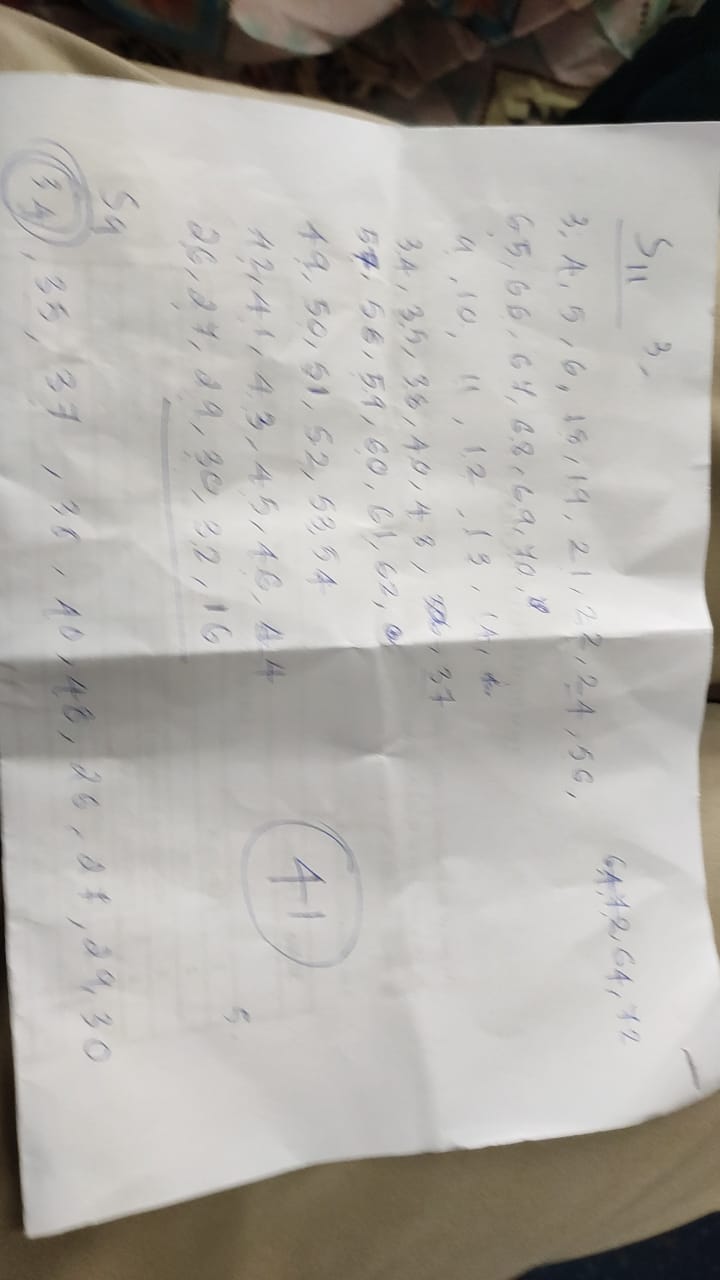 S11 3,
64, 72, 64, 72
3, 4, 5, 6, 18, 19, 21, 22, 24, 56,
65, 66, 67, 68, 69, 70,
9, 10, 11, 12, 13, 14,
34, 35, 38, 40, 48, 37
57, 58, 59, 60, 61, 62,
49, 50, 51, 52, 53, 54
42, 41, 43, 45, 46, 44
26, 27, 29, 30, 32, 16
41
5
S9
34, 35, 37, 38, 40, 48, 26, 27, 29, 30